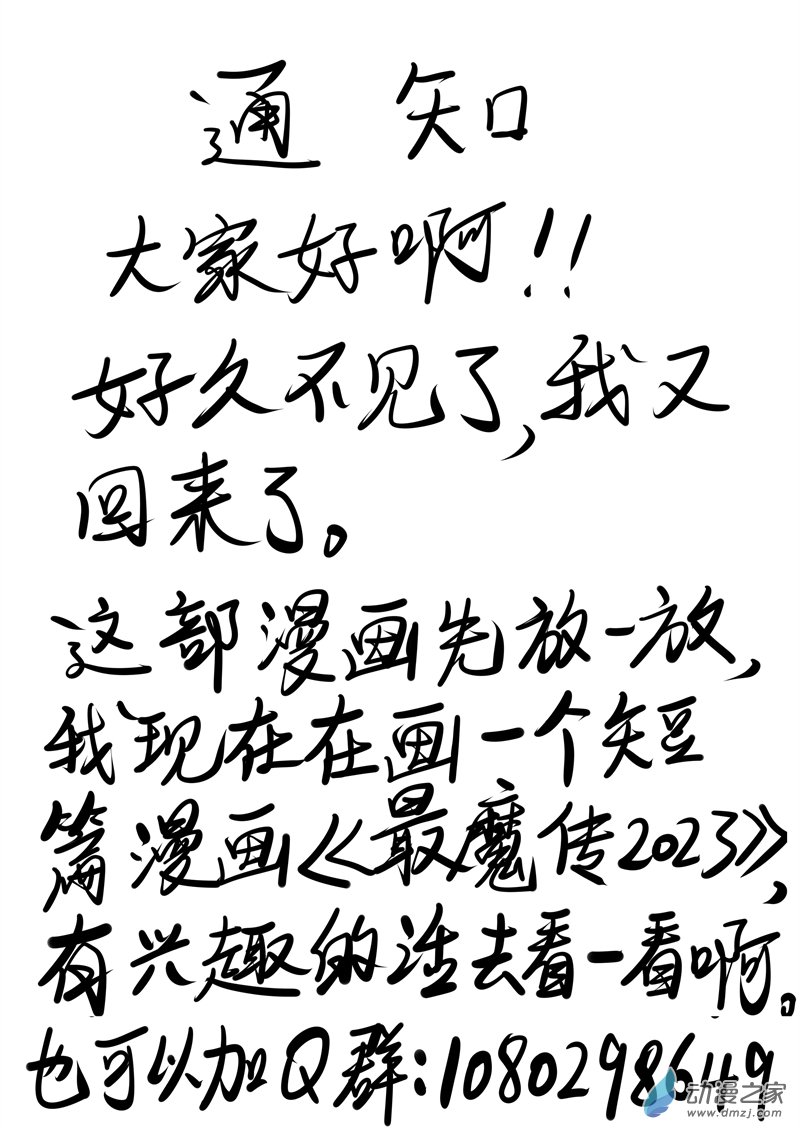 通知
大家好啊!!
好久不见了,我又
回来了。
这部漫画先放一放,
我现在在画一个短
篇漫画《最魔传2023》,
有兴趣的涟去看一看啊。
也可以加Q群:1080298649
动漫之家
www.dmzj.com